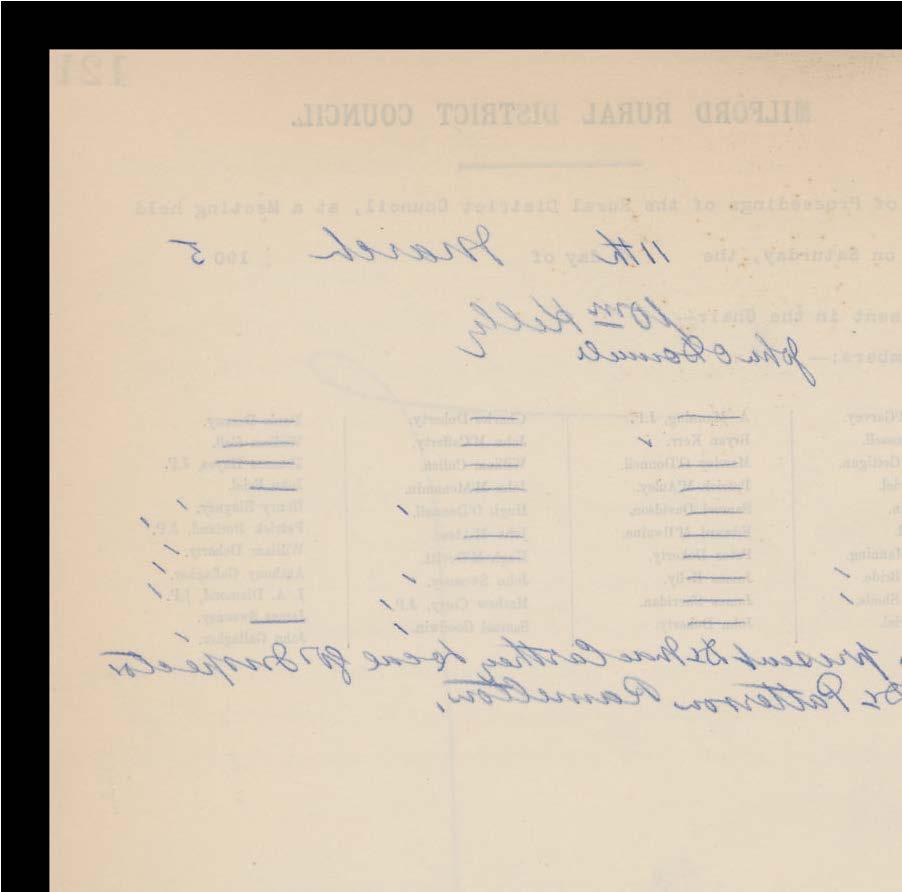 121
MILFORD RURAL DISTRICT COUNCIL.
of Proceedings of the Rural District Council, at a Meeting held
on Saturday, the 11th day of March 1905
sent in the Chair— Wm Kelly
mbers:— John O Donnell
Garvey. A. Manning, J.P. Charles Doherty,
Bryan Kerr. John M'Cafferty,
Gettigan. Manus O'Donnell William Cullen. Hayes, J.P.
iel. Patrick M'Auley. John M'Menamin. John Friel.
Samuel Davidson. Hugh O'Donnell. Henry
Edward John Patrick J.P.
Manning. Peter Doherty, Hugh M'Devitt. William Doherty.
Bride. James Kelly. John Sweeney. Anthony Gallagher.
Sheils. James Sheridan. Mathew Clery, J.P. J. A. Diamond, J.P.
iel. John Doherty. Samuel Goodwin. James Sweeney.
John Gallagher.
present Dr MacCarthy Local Govt Inspector
Dr Patterson Ramelton.